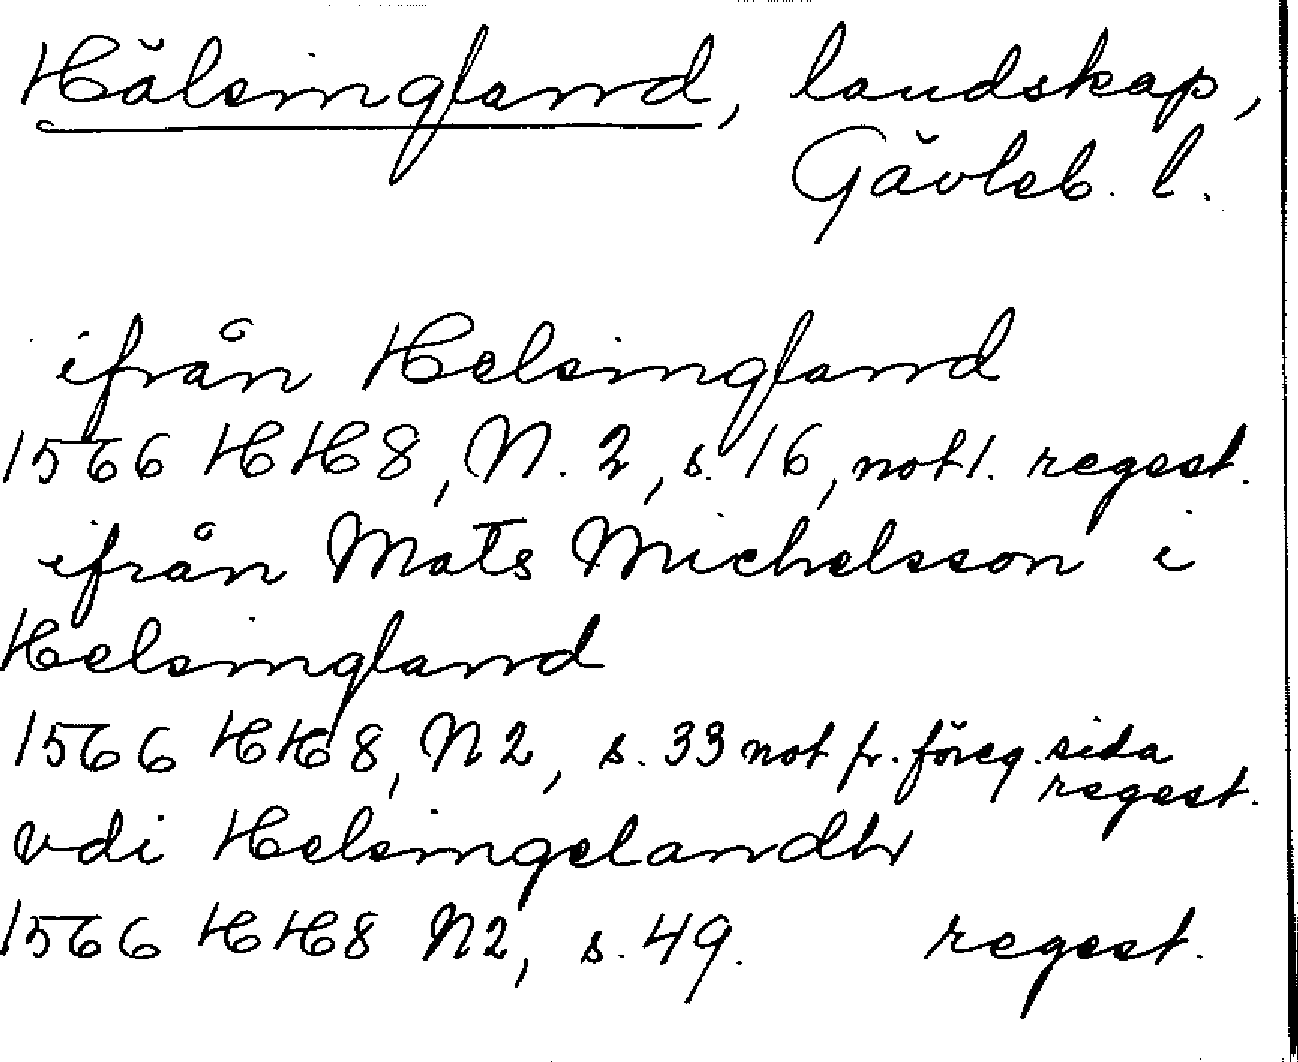 Hälsingland, landskap,
Gävleb. l.
ifrån Helsingland
1566 HH8, N. 2, s. 16, not 1. regest.
ifrån Mats Michelsson i
Helsingland
1566 HH8, N2, s. 33 not fr. föreg. sida
regest.
vdi Helsingelandh
1566 HH8 N2, s. 49. regest.